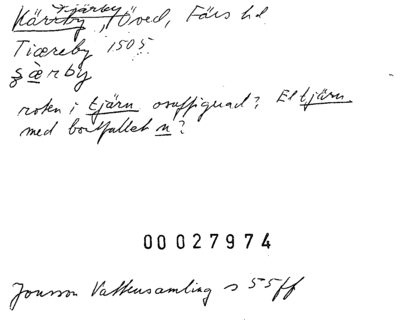 Tjärby
Kärrby, Öved, Färs hd
Tiæreby 1505
şæ̀rby
roten i tjärn osuffigerad? El tjärn
med bortfallet n?
00 027974
Jonsson Vattensamling s 55ff